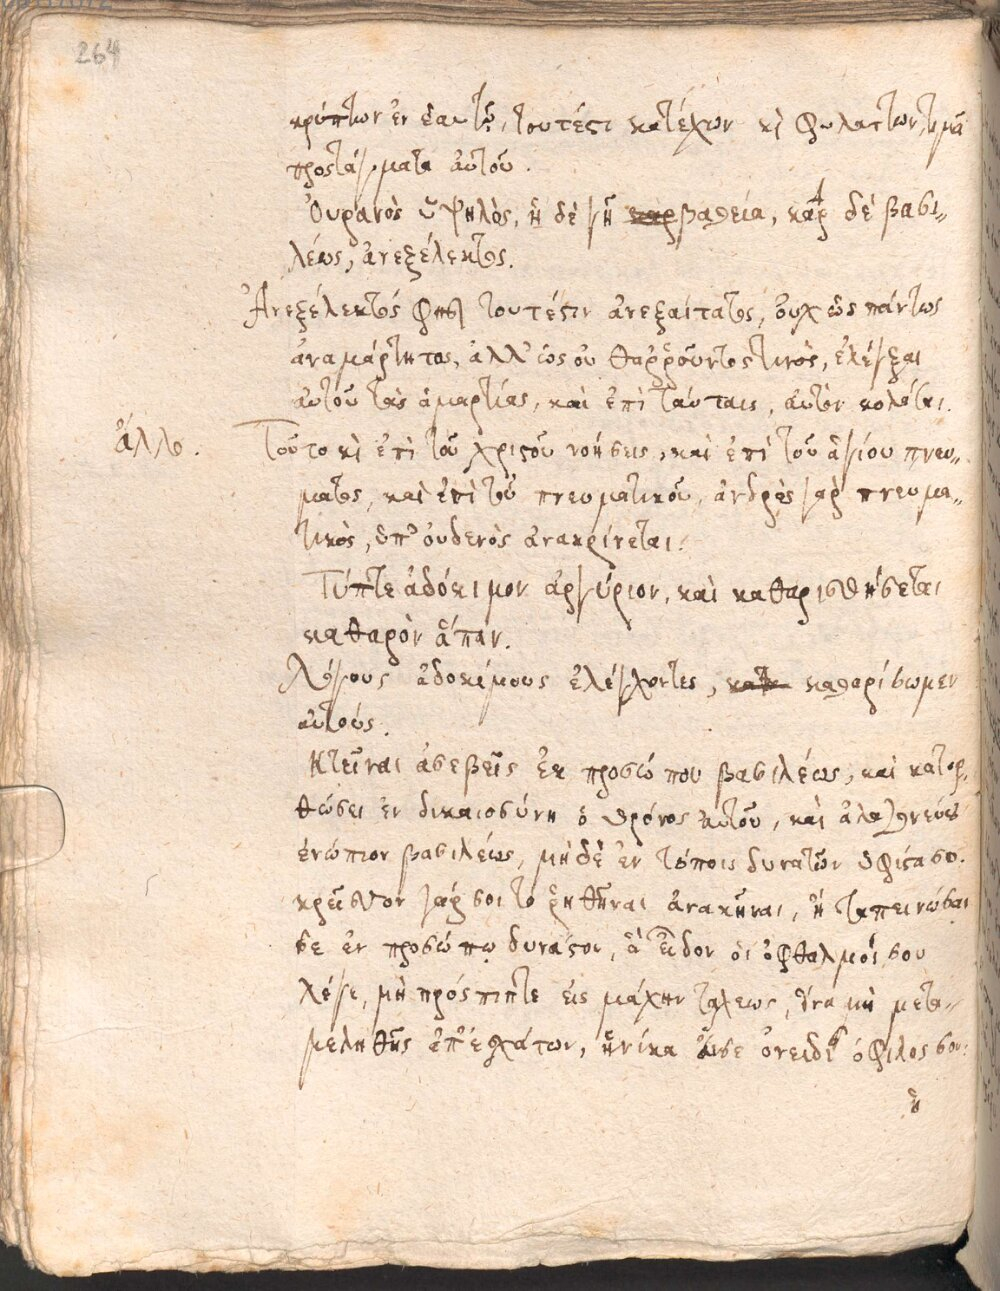 264
κρύπτων ἐν ἑαυτῷ, τουτέστι κατέχων κὶ φυλάττων
προστάγματα αὐτοῦ.
Ὀυρανὸς ὑψηλὸς, ἡ δὲ γῆ βαθεία, καρ δὲ βασι-
λέως, ἀνεξέλεκτος.
Ἀνεξέλεκτος φησὶ τουτέστιν ἀνεξαίτατος, οὐχ ὡς πάντως
ἀναμάρτητος, ἀλλ' ὡς οὐ θαῤῥοῦντος τινὸς, ἐλέγξαι
αὐτοῦ τὰς ἁμαρτίας, καὶ ἐπὶ ταύταις, αὐτὸν κολάσαι.
ἄλλο. Τοῦτο κὶ ἐπὶ τοῦ χριστοῦ νοήσεις, καὶ ἐπὶ τοῦ ἁγίου πνευ-
ματος, καὶ ἐπὶ τοῦ πνευματικοῦ, ἀνδρὸς γὰρ πνευμα-
τικὸς, ὑπ' οὐδενὸς ἀνακρίνεται.
Τύπτε ἀδόκιμον ἀργύριον, καὶ καθαρισθήσεται
καθαρὸν ἅπαν.
Λόγους ἀδοκίμους ἐλέγχοντες, καθαρίσωμεν
αὐτούς.
Κτεῖναι ἀσεβεῖς ἐκ προσώπου βασιλέως, καὶ κατορ-
θώσει ἐν δικαιοσύνη ὁ θρόνος αὐτοῦ, καὶ ἀλαζονεύου
ἐνώπιον βασιλέως, μὴ δὲ ἐν τόποις δυνατῶν ὑφίστασο.
κρεῖσσον γάρ σοι τὸ ῥηθῆναι ἀνα ἢ ταπεινῶσαι
σε ἐν προσώπῳ δυνάστου, ἃ εἶδον οἱ ὀφθαλμοί σου
λέγε, μὴ πρόσπιπτε εἰς μάχην ταχεως, ἵνα μὴ μετα-
μεληθῆς ἐπ' ἐσχάτων, ἡνίκα ἄν σε ὀνειδίσῃ ὁ φίλος σου.